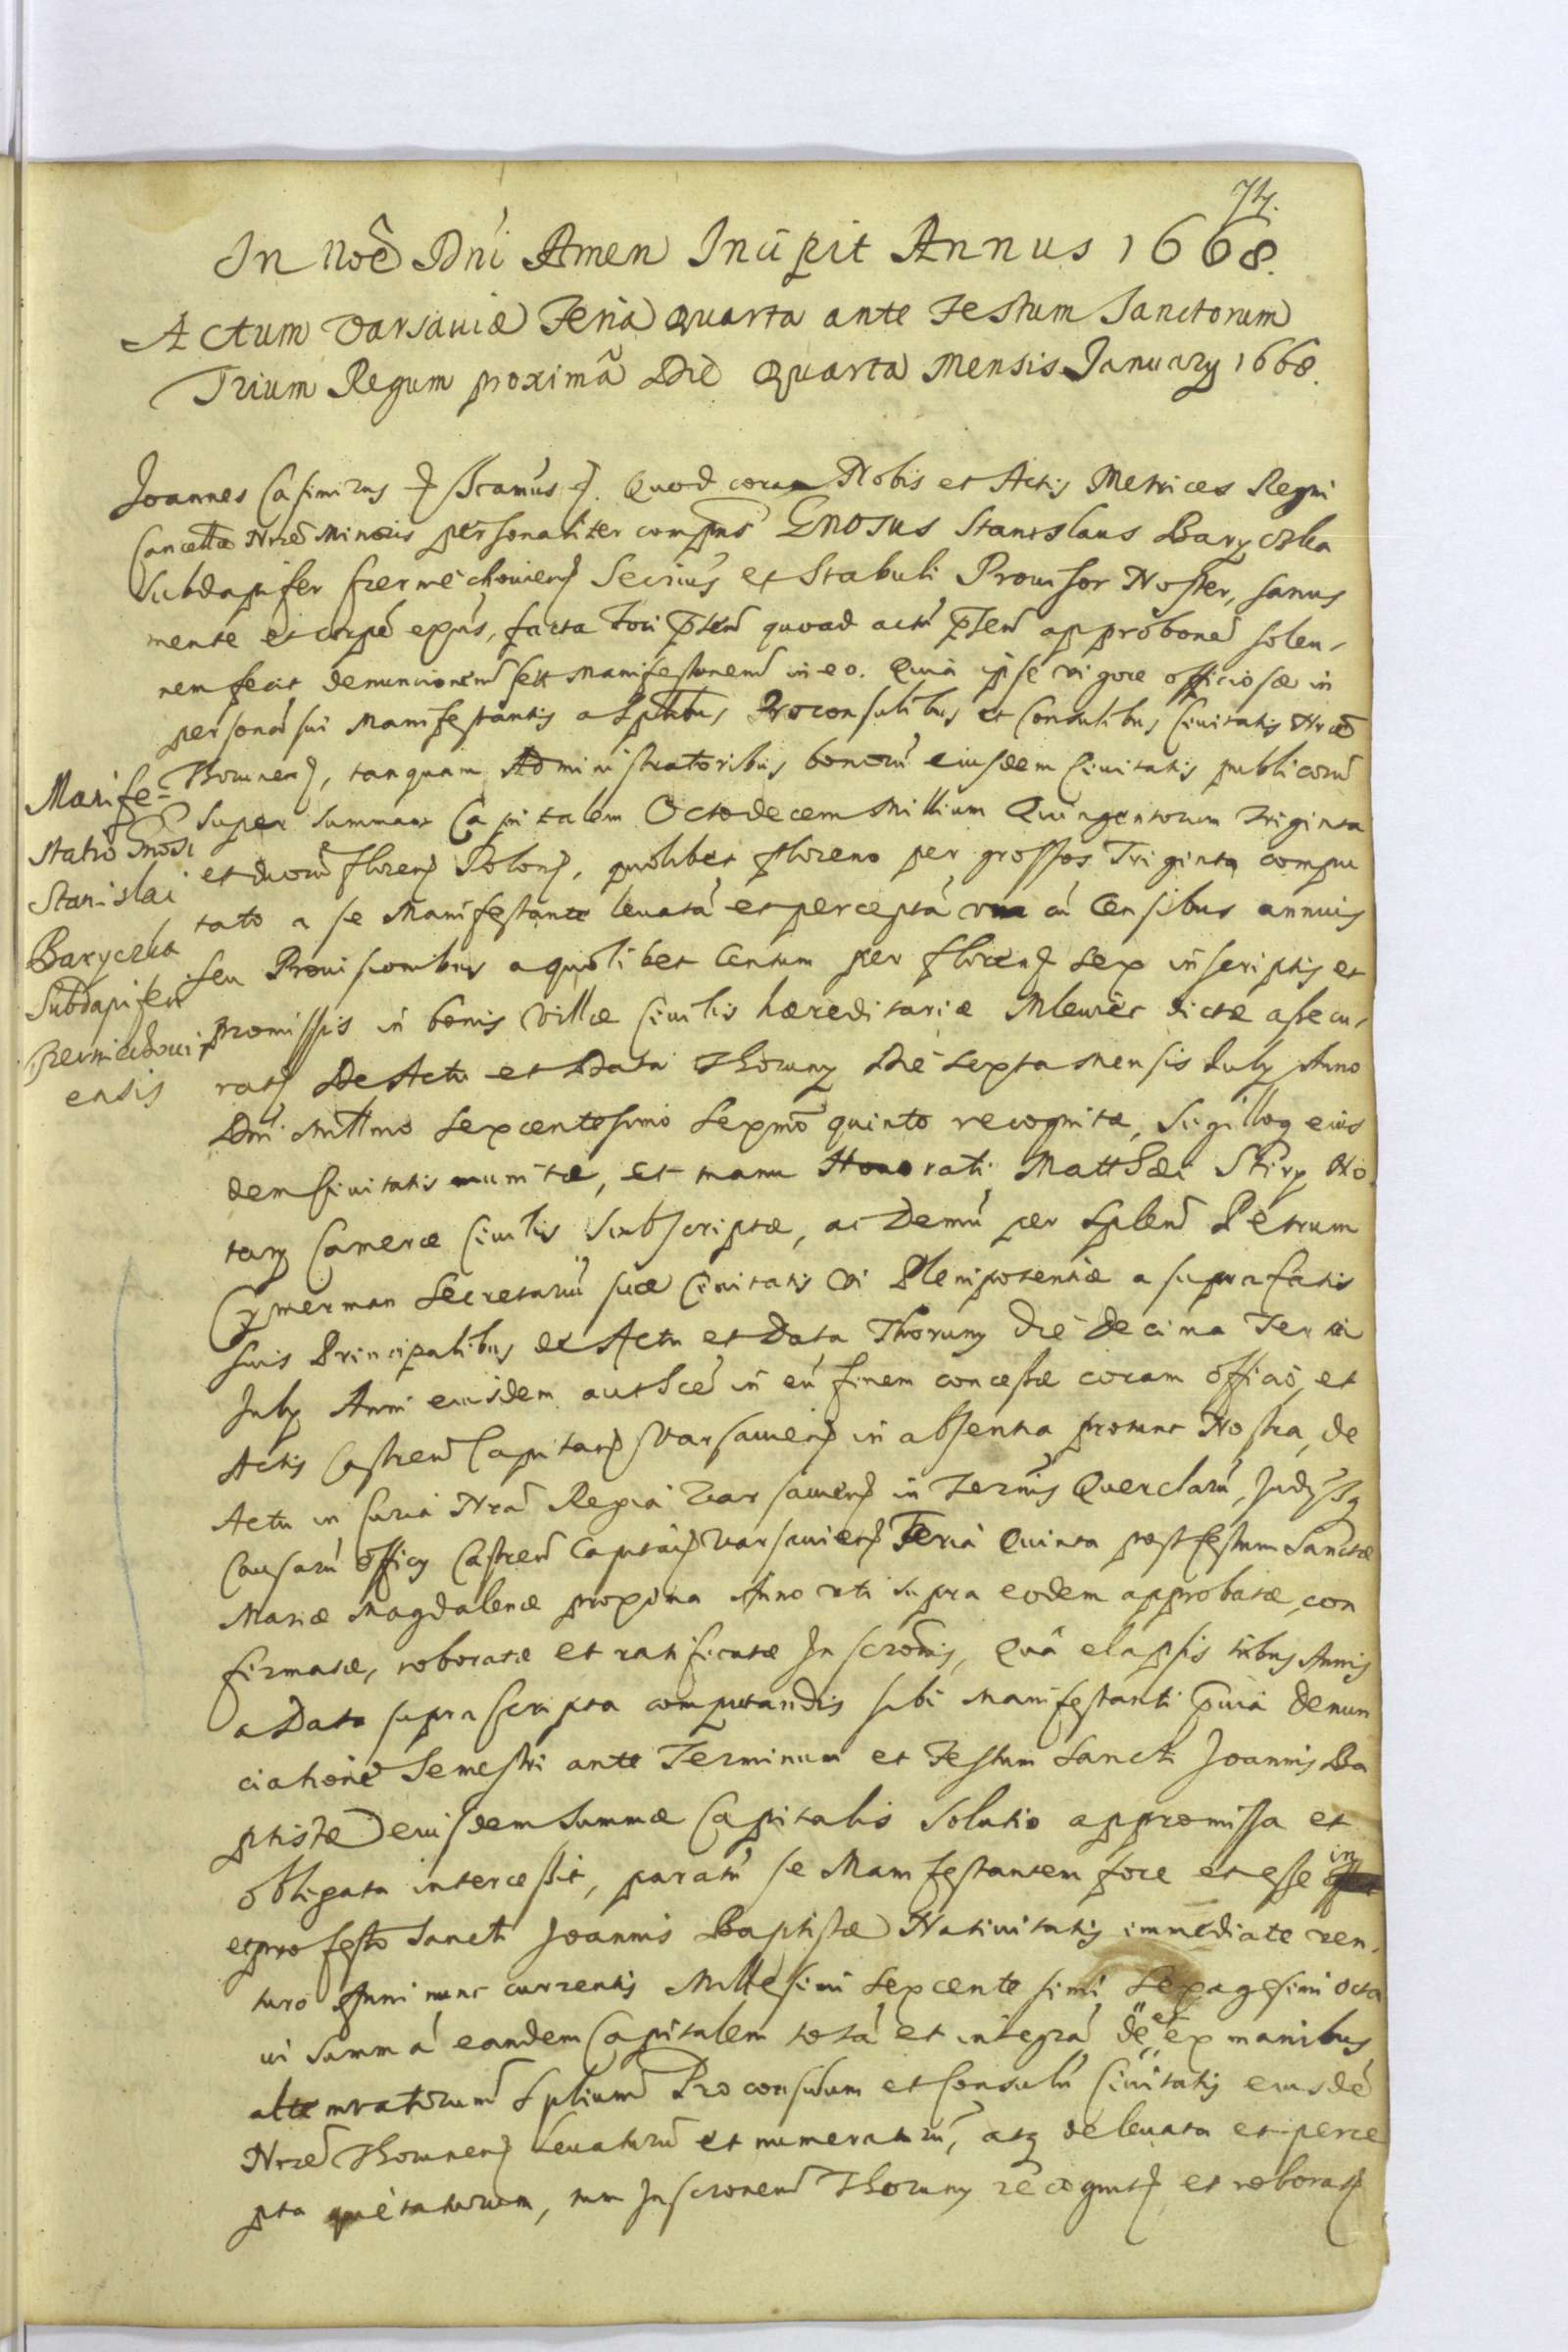 74.
In Noe Dni Amen Incipit Annus 1668.
Actum Varsauiæ Feria Quarta ante Festum Sanctorum
Trium Regum proximã Die Quarta Mensis January 1668.
Joannes Casimirus Quod coram Nobis et Actis Metrices Regni
Cancellæ Nræ Minoris personaliter compns Gnosus Stanislaus Baryczka
Subdapifer Secrius et Stabuli Prouisor Noster, sanus
mente et corpe exns, facta fori quoad actũ approbone solen-
nem fecit denuncionem seu Manifestonem in eo. Quia ipse vigore officiosæ in
personã sui Manifestantis a Spblibus Proconsulibus et Consulibus Ciuitatis Nræ
Thorunen, tanquam Administratoribus bonorũ eiusdem Ciuitatis publicorũ
super summam Capitalem Octodecem Millium Quingentorum Triginta
et duorũ floren Polon, quolibet floreno per grossos Triginta compu
tato a se Manifestante leuatã et perceptã vna cũ Censibus annuis
seu Prouisionibus a quolibet Centum per floren sex inscriptis et
promissis in bonis Villæ Ciuilis hæreditariæ Mlewiec dictæ assecu-
rat De Actu et Data Thoruny Die Sexta Mensis July Anno
Dni Millmo Sexcentesimo Sexmo quinto recognitæ, Sigilloq eius
dem Ciuitatis munitæ, et manu Honorati Matthæi No
tary Cameræ Ciuilis Subscriptæ, ac Demũ per Splend Petrum
Cymerman Secretariũ suæ Ciuitatis Vi Plenipotentiæ a suprafatis
suis Principalibus de Actu et Data Thoruny Die Decima Tertia
July Anni eiusdem in eũ finem concessæ coram Officio, et
Actis Castren Capitan Varsauien in absentia protunc Nostra, de
Actu in Curia Nra Regia Varsauien in Terminis Querelarũ, Judysq
Causarũ Officy Castren Capitan Varsauien Feria Quinta post festum Sanctæ
Mariæ Magdalenæ proxima Anno uti supra eodem approbatæ, con
firmatæ, roboratæ et ratificatæ Inscronis, Quã elapsis tribus Annis
a Data suprascripta computandis sibi Manifestanti denun
ciatione Semestri ante Terminum et Festum Sancti Joannis Ba
ptistæ eiusdem Summæ Capitalis Solutio appromissa et
obligata intercessit, paratũ se Manifestantem fore et esse in
et pro festo Sancti Joannis Baptistæ Natiuitatis immediate ven-
turo Anni nunc currentis Millesimi Sexcentesimi Sexagesimi octa
ui Summã eandem Capitalem totã et integrã de et ex manibus
Spblium Proconsulum et Consulũ Ciuitatis eiusdẽ
Nræ Thorunen leuaturũ et numeraturũ, atq de leuata et perce
pta quietaturum, tum Inscronem Thoruny recognit et roborat
Manife-
statio Gnosi
Stanislai
Baryczka
Subdapiferi
ensis